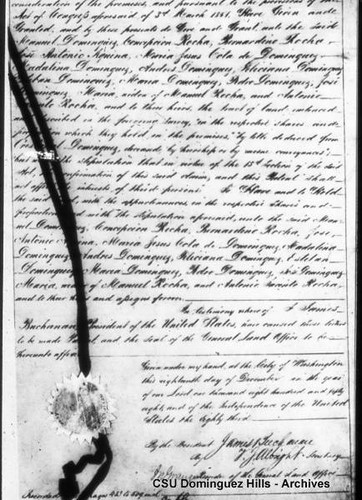 consideration of the premises, and pursuant to the provisions of the
Act of Congress aforesaid of 3rd March 1851 Have Given and
Granted, and by these presents do Give and Grant, unto the said
Manuel Dominguez, Concepcion Rocha, Bernardino Rocha
Jose Antonio Aguirre, Maria Jesus Cota de Dominguez
Madalina Dominguez, Andres Dominguez, Feliciana Dominguez
Esteban Dominguez, Maria Dominguez, Pedro Dominguez, Jose
Dominguez, Maria, widow of Manuel Rocha, and Antonio
Rocha, and to their heirs, the tract of land embraced
and described in the foregoing survey, in the respective shares and
in which they held in the premises, by title deduced from
Dominguez, deceased, by heirship or by mesne conveyances
but with the stipulation that in virtue of the 15th Section of the said
Act, the confirmation of this said claim, and this Patent shall
not affect the interests of third persons. To Have and to Hold
the said tract, with the appurtenances, in the respective shares and
proportions and with the stipulation aforesaid, unto the said Man-
uel Dominguez, Concepcion Rocha, Bernardino Rocha, Jose
Antonio, Maria Jesus Cota de Dominguez, Madalina
Dominguez, Andres Dominguez, Feliciana Dominguez, Esteban
Dominguez, Maria Dominguez, Pedro Dominguez, Jose Dominguez
Maria, widow of Manuel Rocha, and Antonio Rocha
and to their heirs and assigns forever.
In testimony whereof I James
Buchanan President of the United States, have caused these letters
to be made Patent, and the seal of the General Land Office to be
hereunto affixed
Given under my hand, at the City of Washington
this eighteenth day of December in the year
of our Lord one thousand eight hundred and fifty
eight, and of the Independence of the United
States the eighty third
By the President James Buchanan
By Secretary
of the General Land Office
Recorded
CSU Dominguez Hills - Archives